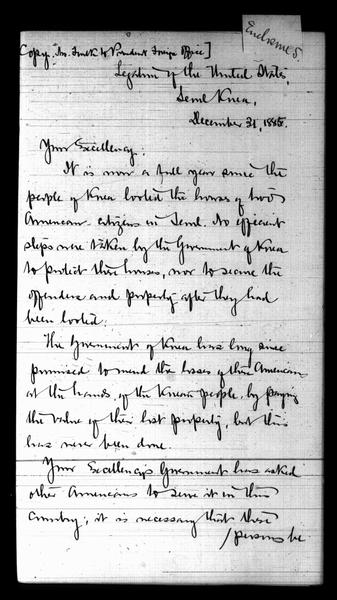 Enclosure 5.
Copy. [Mr. Foulk to President Foreign Office]
Legation of the United States,
Seoul Korea,
December 31, 1885.
Your Excellency:
It is now a full year since the
people of Korea looted the houses of two
American citizens in Seoul. No efficient
steps were taken by the Government of Korea
to protect these houses, nor to secure the
offenders and property after they had
been looted.
The Government of Korea has long since
promised to mend the losses of these Americans
at the hands of the Korean people, by paying
the value of their lost property, but this
has never been done.
Your Excellency's Government has asked
other Americans to serve it in this
country; it is necessary that these
/persons be